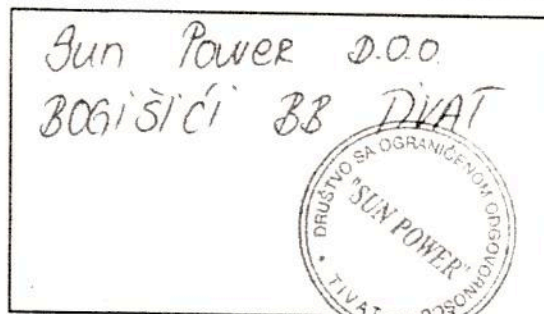 Sun Power D.O.O.
BOGIŠIĆI BB TIVAT
DRUŠTVO SA OGRANIČENOM ODGOVORNOŠĆU
"SUN POWER"
TIVAT